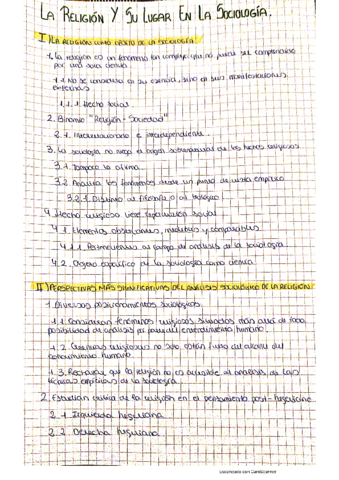 LA RELIGIÓN Y SU LUGAR EN LA SOCIOLOGÍA.
I) LA RELIGIÓN COMO OBJETO DE LA SOCIOLOGÍA.
1. La religión es un fenómeno tan complejo que no puede ser comprendido
por una única ciencia
1.1 No se considera en su esencia, sino en sus manifestaciones
externas
1.1.1 Hecho social
2. Binomio "Religión - Sociedad"
2.1. Interrelacionado e interdependiente
3. La sociología no niega el origen sobrenatural de los hechos religiosos
3.1 Tampoco la afirma
3.2 Analiza los fenómenos desde un punto de vista empírico
3.2.1 Distinto al filosófico o al teológico
4. Hecho religioso tiene repercusión social
4.1. Elementos observables, medibles y comparables
4.1.1. Pertenecientes al campo de análisis de la sociología
4.2. Objeto específico de la sociología como ciencia
II) PERSPECTIVAS MÁS SIGNIFICATIVAS DEL ANÁLISIS SOCIOLÓGICO DE LA RELIGIÓN:
1. Diversos posicionamientos sociológicos
1.1 Consideran fenómenos religiosos situados más allá de toda
posibilidad de análisis por parte del entendimiento humano.
1.2 religiosas no solo están fuera del alcance del
conocimiento humano.
1.3. Rechazan que la religión no es accesible al análisis de las
técnicas empíricas de la sociología.
2. Estudian crítica de la religión en el pensamiento post-hegeliano
2.1 Izquierda hegeliana
2.2 Derecha hegeliana
Escaneado con CamScanner